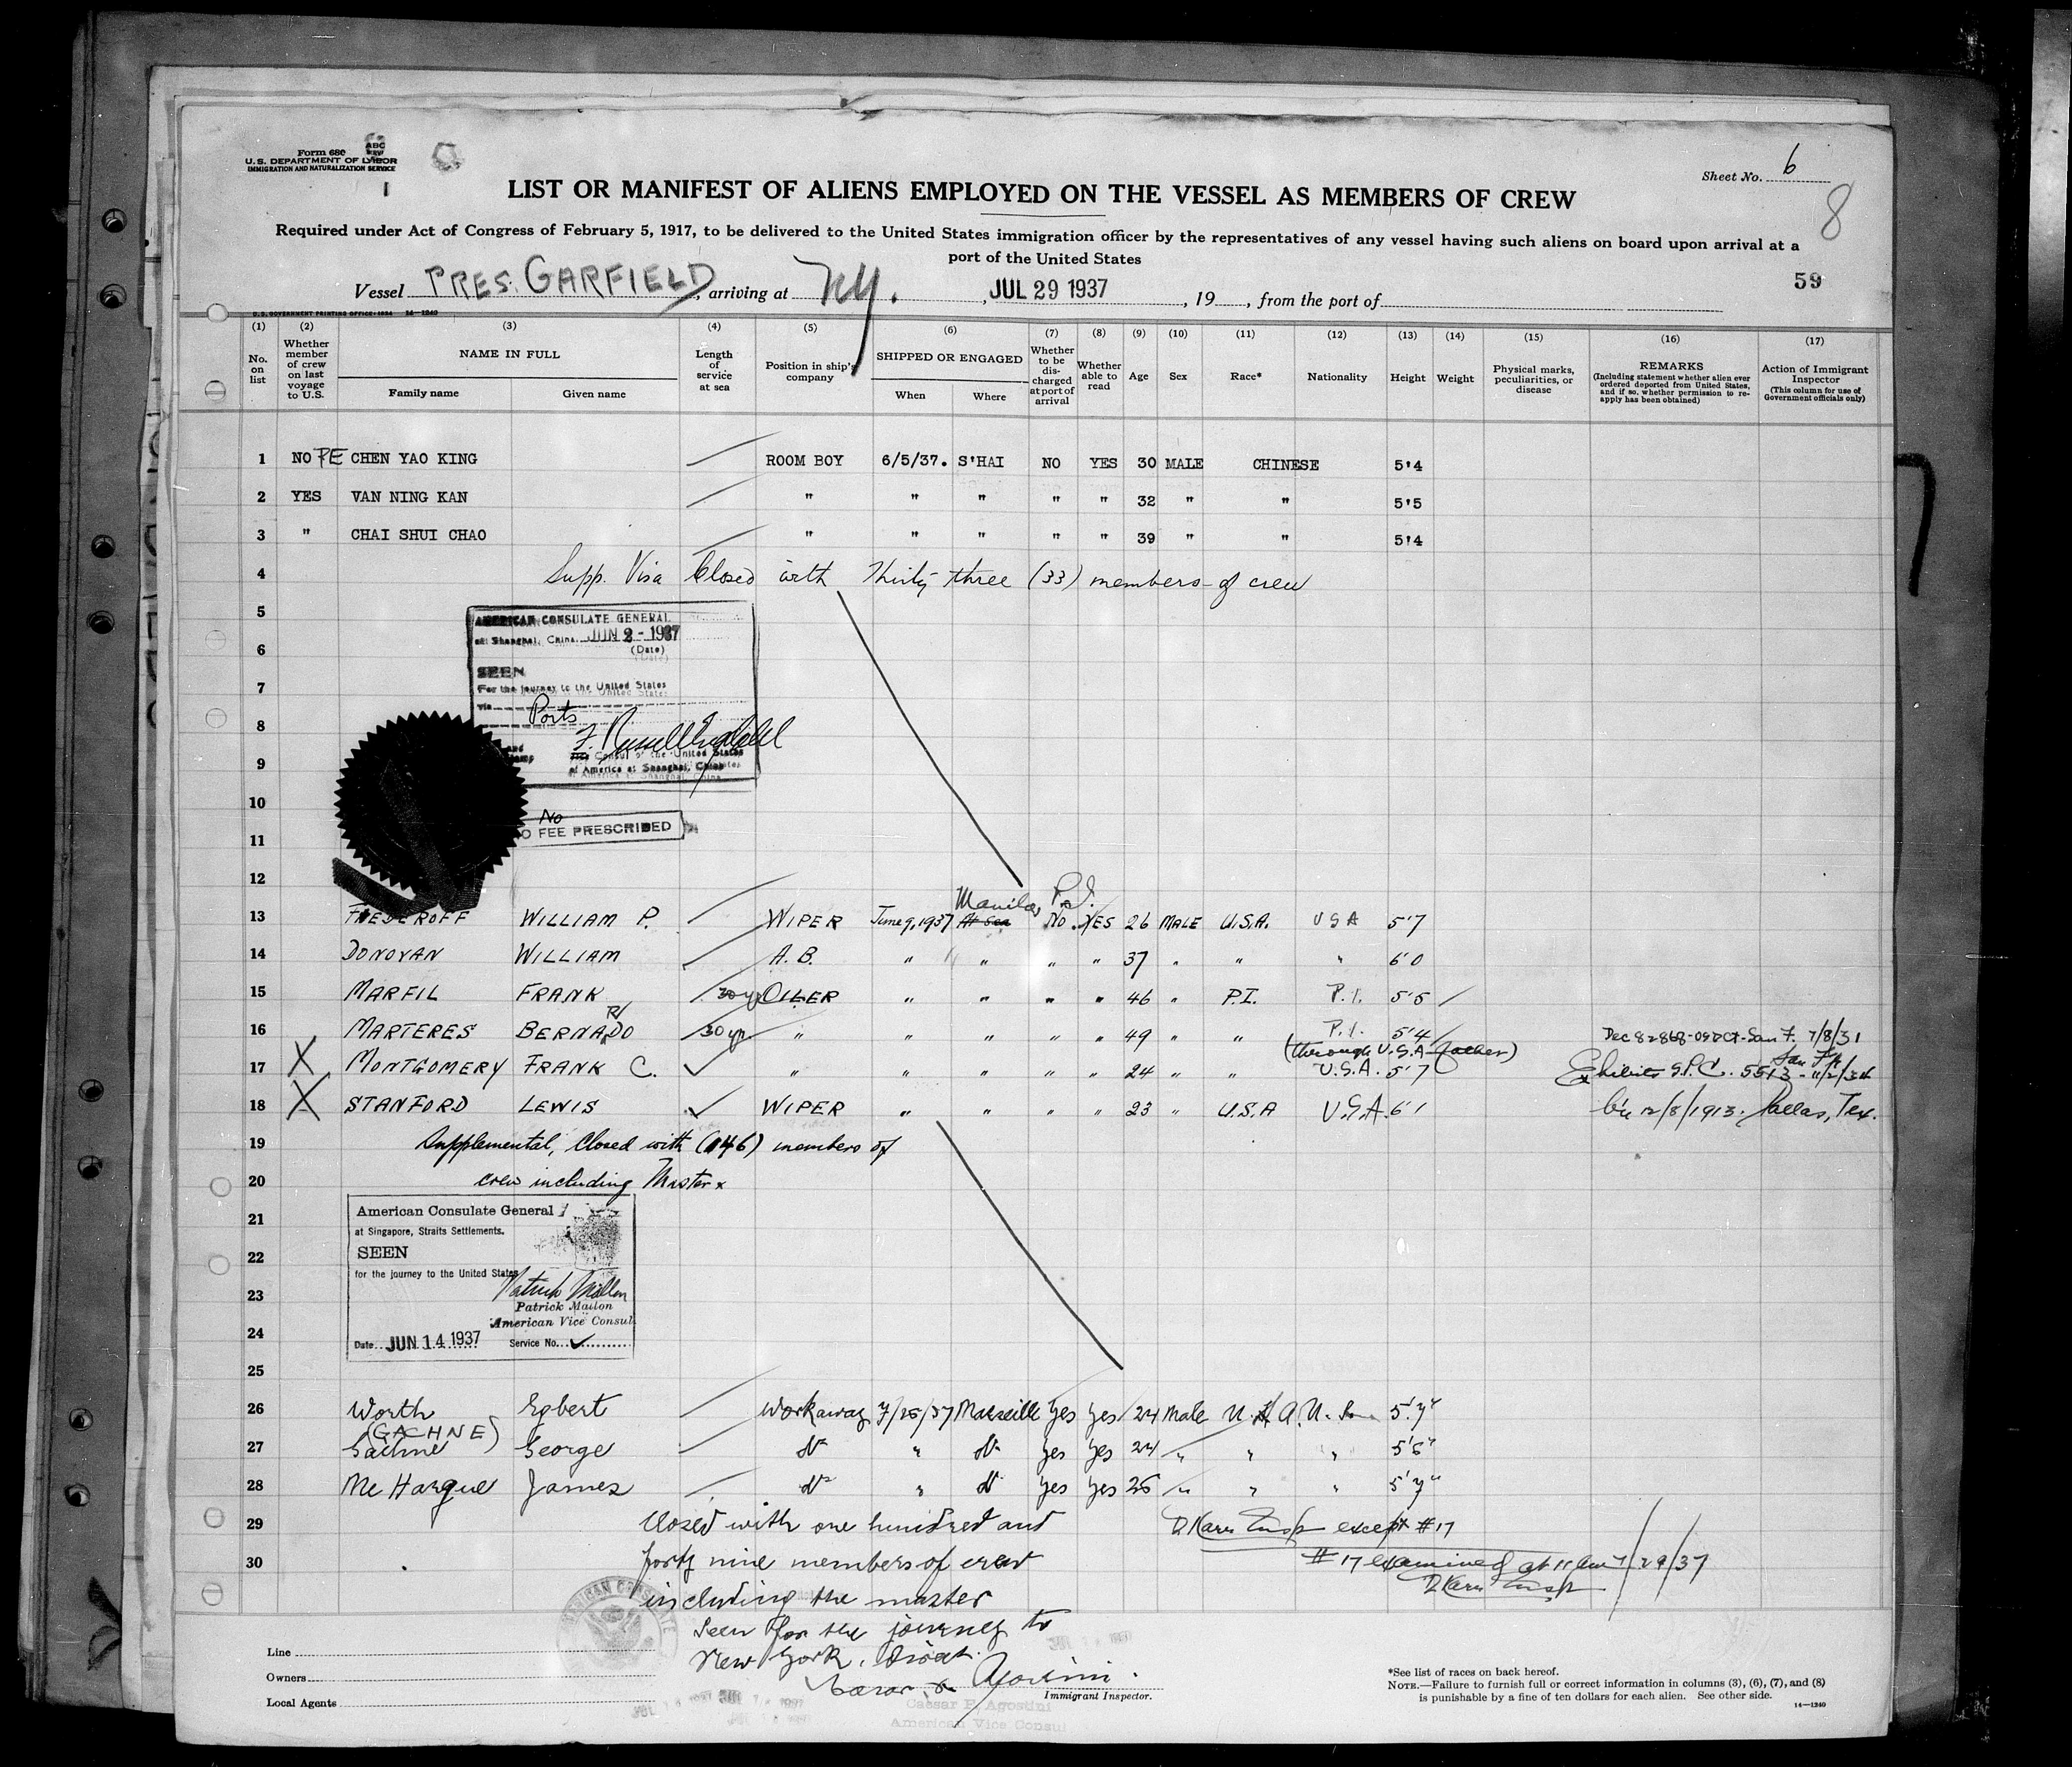 Form 680
U. S. DEPARTMENT OF LABOR
IMMIGRATION AND NATURALIZATION SERVICE
Sheet No. 6
8
LIST OR MANIFEST OF ALIENS EMPLOYED ON THE VESSEL AS MEMBERS OF CREW
Required under Act of Congress of February 5, 1917, to be delivered to the United States immigration officer by the representatives of any vessel having such aliens on board upon arrival at a
port of the United States
59
Vessel PRES. GARFIELD, arriving at NY., JUL 29 1937, 19, from the port of
U.S. GOVERNMENT PRINTING OFFICE: 1934 14—1240
(1) (2) (3) (4) (5) (6) (7) (8) (9) (10) (11) (12) (13) (14) (15) (16) (17)
No. on list
Whether member of crew on last voyage to U.S.
NAME IN FULL
Family name
Given name
Length of service at sea
Position in ship's company
SHIPPED OR ENGAGED
When
Where
Whether to be discharged at port of arrival
Whether able to read
Age
Sex
Race*
Nationality
Height
Weight
Physical marks, peculiarities, or disease
REMARKS
(Including statement whether alien ever ordered deported from United States, and if so, whether permission to re-apply has been obtained)
Action of Immigrant Inspector
(This column for use of Government officials only)
1 NO PE CHEN YAO KING ROOM BOY 6/5/37. S'HAI NO YES 30 MALE CHINESE 5'4
2 YES VAN NING KAN " " " " " 32 " " 5'5
3 " CHAI SHUI CHAO " " " " " 39 " " 5'4
4 Supp. Visa Closed with Thirty three (33) members of crew
5
AMERICAN CONSULATE GENERAL
at Shanghai, China. JUN 2 - 1937
6
(Date)
SEEN
7
For the journey to the United States
via
Ports
8
9
Consul of the United States
of America at Shanghai, China
10
No
NO FEE PRESCRIBED
11
12
Manila, P.I.
13 FREDEROFF WILLIAM P. WIPER June 9, 1937 At Sea NO YES 26 MALE U.S.A. USA 5'7
14 DONOVAN WILLIAM A. B. " " " " 37 " " " 6'0
15 MARFIL FRANK 30 yr OILER " " " " 46 " P.I. P.I. 5'5
16 MARTERES BERNARDO 30 yr " " " " " 49 " " P.I. 5'4 Dec 7/8/31
(through U.S.A father)
17 X MONTGOMERY FRANK C. " " " " " 24 " " U.S.A. 5'7 Exhibits S.P.C. 5513 - San Fr 11/2/34
18 X STANFORD LEWIS WIPER " " " " 23 " U.S.A U.S.A. 6'1 12/8/1913. Dallas, Tex.
19 Supplemental, Closed with (146) members of
20 crew including Master
21
American Consulate General
at Singapore, Straits Settlements.
22
SEEN
for the journey to the United States
23
Patrick Mallon
Patrick Mallon
American Vice Consul
24
Date JUN 14 1937 Service No.
25
26 Worth Egbert Workaway 7/15/37 Marseille Yes Yes 24 Male U.S.A. 5'.7"
(GACHNE)
27 Gachne George " Yes Yes 24 " " " 5'6"
28 Mc Hargue James " Yes Yes 25 " " " 5'7"
29 Closed with one hundred and except #17
30 forty nine members of crew #17 examined at 11 am 7/29/37
including the master
Seen for the journey to
New York, direct.
Line
Owners
Local Agents
Immigrant Inspector.
Caesar F. Agostini
American Vice Consul
*See list of races on back hereof.
NOTE.—Failure to furnish full or correct information in columns (3), (6), (7), and (8)
is punishable by a fine of ten dollars for each alien. See other side.
14—1240